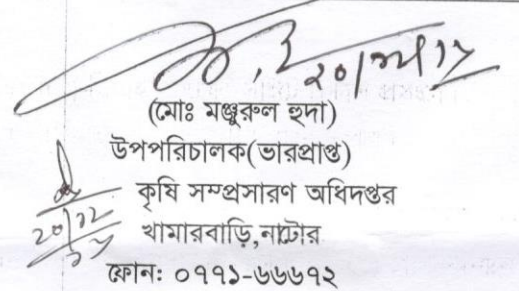 ২০/১২/১৮
(মোঃ মঞ্জুরুল হুদা)
উপপরিচালক(ভারপ্রাপ্ত)
কৃষি সম্প্রসারণ অধিদপ্তর
খামারবাড়ি,নাটোর
ফোন: ০৭৭১-৬৬৬৭২